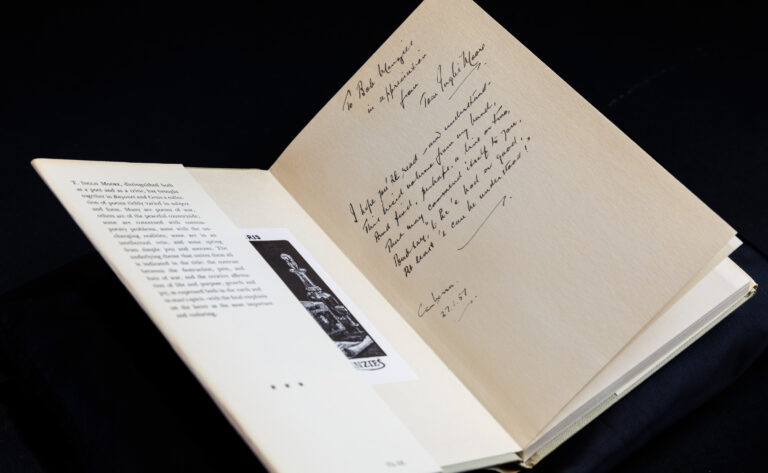 T. Inglis Moore, distinguished both
as a poet and as a critic, has brought
together in Bayonet and Grass a collec-
tion of poems richly varied in subject
and form. Many are poems of war,
others are of the peaceful countryside;
some are concerned with contem-
porary problems, some with the un-
changing realities; some are in an
intellectual vein, and some spring
from simple joys and sorrows. The
underlying theme that unites them all
is indicated in the title: the contrast
between the destruction, pain, and
hate of war, and the creative affirma-
tion of life and purpose, growth and
joy, as expressed both in the earth and
in man's spirit—with the final emphasis
on the latter as the more important
and enduring.
RIS
NZIES
To Bob Menzies
in appreciation
from
Tom Inglis Moore
I hope you'll read – and understand –
This volume from my hand,
And find, perhaps, a line or two,
That may commend itself to you,
And say, 'e bad or good,
At least 'e can be understood!
Canberra
27.1.57